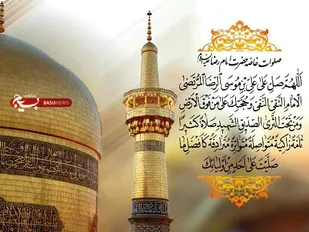 صلوات خاصه حضرت امام رضا
اَللّهُمَّ صَلِّ عَلى عَلِیِّ بْنِ مُوسَى الرِّضَا الْمُرْتَضى
الْاِمامِ التَّقِیِّ النَّقِیِّ وَ حُجَّتِکَ عَلى مَنْ فَوْقَ الْاَرْضِ
وَ مَنْ تَحْتَ الثَّرى الصِّدّیقِ الشَّهیدِ صَلاةً کَثیرَةً
تامَّةً زاکِیَةً مُتَواصِلَةً مُتَواتِرَةً مُتَرادِفَةً کَاَفْضَلِ ما
صَلَّیْتَ عَلى اَحَدٍ مِنْ اَوْلِیائِکَ
بسیج
BASIJNEWS